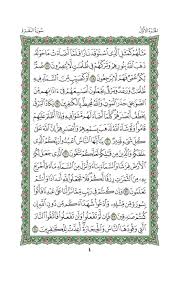 الجزء الأول
سورة البقرة
مَثَلُهُمْ كَمَثَلِ ٱلَّذِى ٱسْتَوْقَدَ نَارًا فَلَمَّآ أَضَآءَتْ مَا حَوْلَهُۥ
ذَهَبَ ٱللَّهُ بِنُورِهِمْ وَتَرَكَهُمْ فِى ظُلُمَٰتٍ لَّا يُبْصِرُونَ ١٧ صُمٌّۢ
بُكْمٌ عُمْىٌ فَهُمْ لَا يَرْجِعُونَ ١٨ أَوْ كَصَيِّبٍ مِّنَ ٱلسَّمَآءِ فِيهِ
ظُلُمَٰتٌ وَرَعْدٌ وَبَرْقٌ يَجْعَلُونَ أَصَٰبِعَهُمْ فِىٓ ءَاذَانِهِم مِّنَ
ٱلصَّوَٰعِقِ حَذَرَ ٱلْمَوْتِ وَٱللَّهُ مُحِيطٌۢ بِٱلْكَٰفِرِينَ ١٩ يَكَادُ ٱلْبَرْقُ
يَخْطَفُ أَبْصَٰرَهُمْ كُلَّمَآ أَضَآءَ لَهُم مَّشَوْا۟ فِيهِ وَإِذَآ أَظْلَمَ عَلَيْهِمْ
قَامُوا۟ وَلَوْ شَآءَ ٱللَّهُ لَذَهَبَ بِسَمْعِهِمْ وَأَبْصَٰرِهِمْ إِنَّ ٱللَّهَ عَلَىٰ
كُلِّ شَىْءٍ قَدِيرٌ ٢٠ يَٰٓأَيُّهَا ٱلنَّاسُ ٱعْبُدُوا۟ رَبَّكُمُ ٱلَّذِى
خَلَقَكُمْ وَٱلَّذِينَ مِن قَبْلِكُمْ لَعَلَّكُمْ تَتَّقُونَ ٢١ ٱلَّذِى جَعَلَ لَكُمُ
ٱلْأَرْضَ فِرَٰشًا وَٱلسَّمَآءَ بِنَآءً وَأَنزَلَ مِنَ ٱلسَّمَآءِ مَآءً فَأَخْرَجَ
بِهِۦ مِنَ ٱلثَّمَرَٰتِ رِزْقًا لَّكُمْ فَلَا تَجْعَلُوا۟ لِلَّهِ أَندَادًا وَأَنتُمْ
تَعْلَمُونَ ٢٢ وَإِن كُنتُمْ فِى رَيْبٍ مِّمَّا نَزَّلْنَا عَلَىٰ عَبْدِنَا فَأْتُوا۟
بِسُورَةٍ مِّن مِّثْلِهِۦ وَٱدْعُوا۟ شُهَدَآءَكُم مِّن دُونِ ٱللَّهِ إِن كُنتُمْ
صَٰدِقِينَ ٢٣ فَإِن لَّمْ تَفْعَلُوا۟ وَلَن تَفْعَلُوا۟ فَٱتَّقُوا۟ ٱلنَّارَ
ٱلَّتِى وَقُودُهَا ٱلنَّاسُ وَٱلْحِجَارَةُ أُعِدَّتْ لِلْكَٰفِرِينَ ٢٤
٤